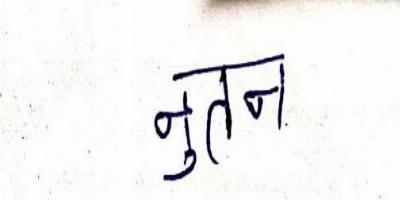 नुतन